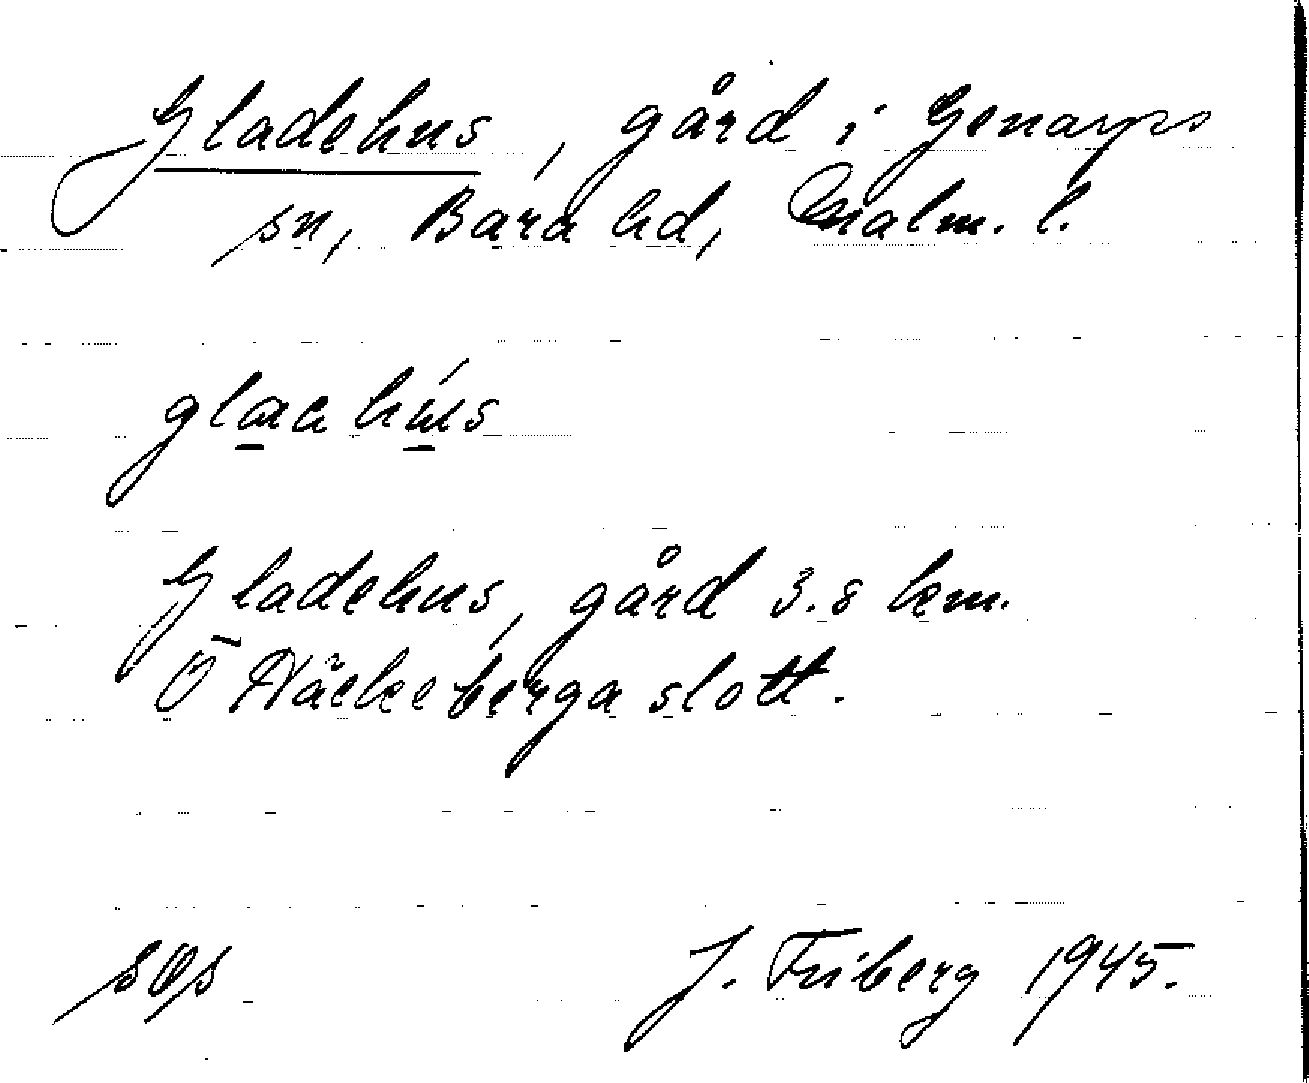 Gladehus, gård i Genarps
sn, Bara hd, Malm. l.
Gladehus, gård 3.8 km.
Ö Häckeberga slott.
J. Friberg 1945.